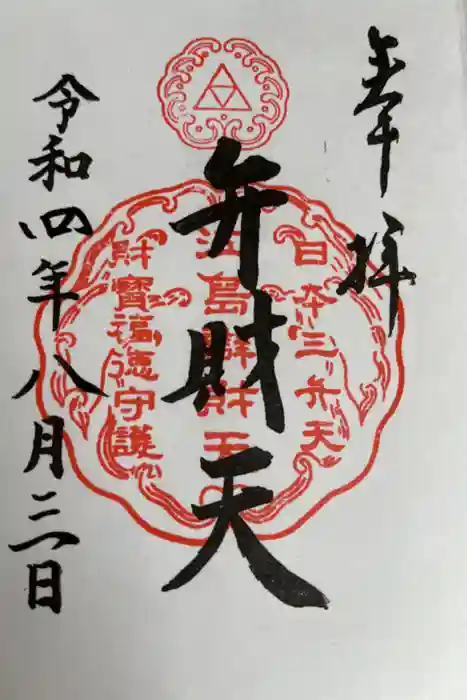 奉拝
日本三弁天
江島辨財天
弁財天
財寶福德守護
令和四年八月三日